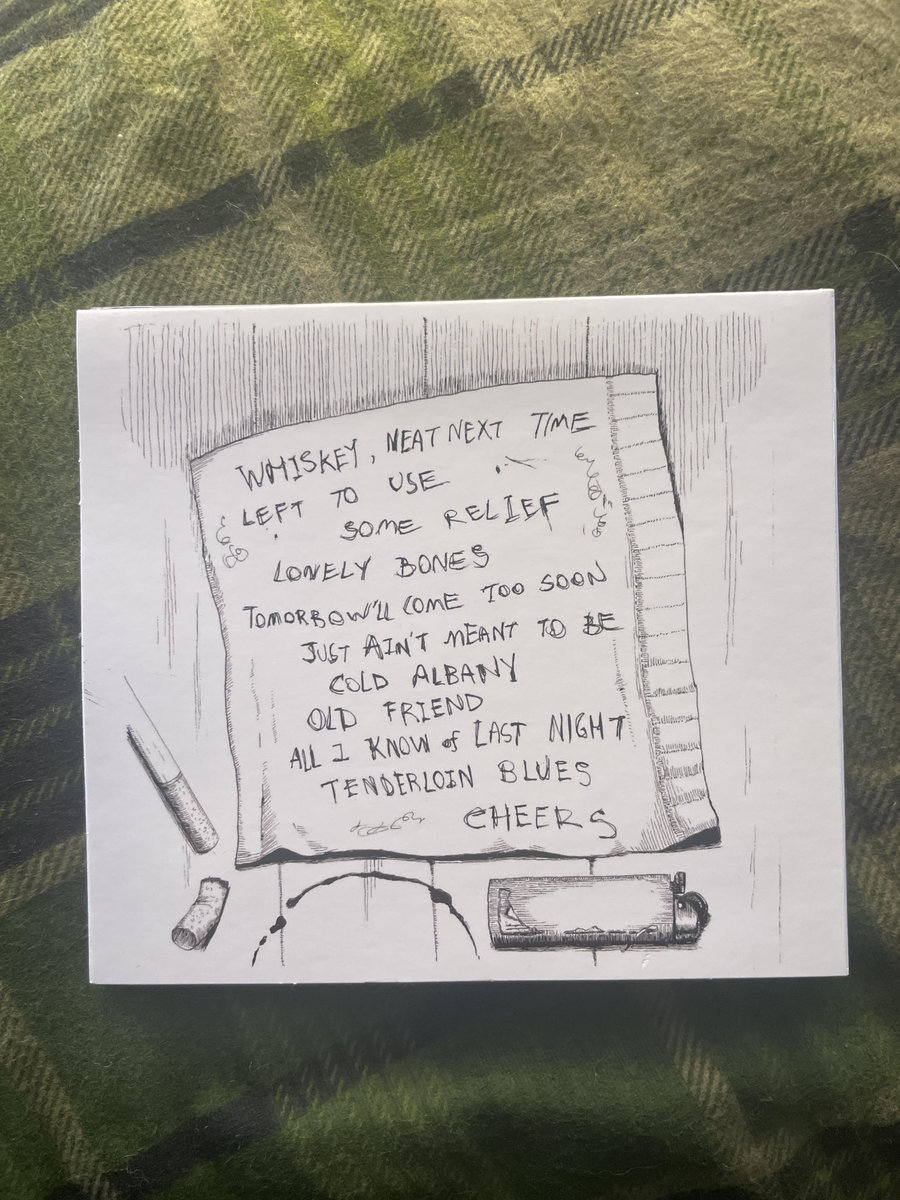 WHISKEY, NEAT NEXT TIME
LEFT TO USE
SOME RELIEF
LONELY BONES
TOMORROW'LL COME TOO SOON
JUST AIN'T MEANT TO BE
COLD ALBANY
OLD FRIEND
ALL I KNOW of LAST NIGHT
TENDERLOIN BLUES
CHEERS